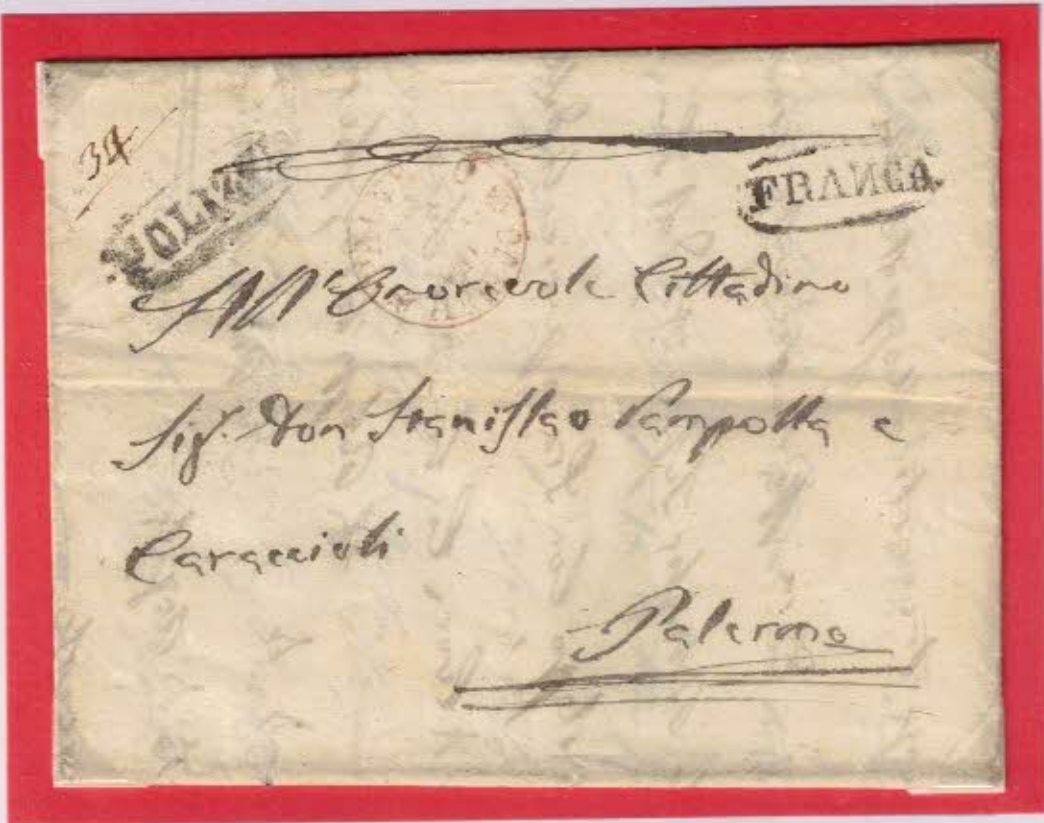 34
POLIZZI
FRANCA
All'Onorevole Cittadino
Sig. Don Stanislao Pampolla e
Caraccioli
Palermo